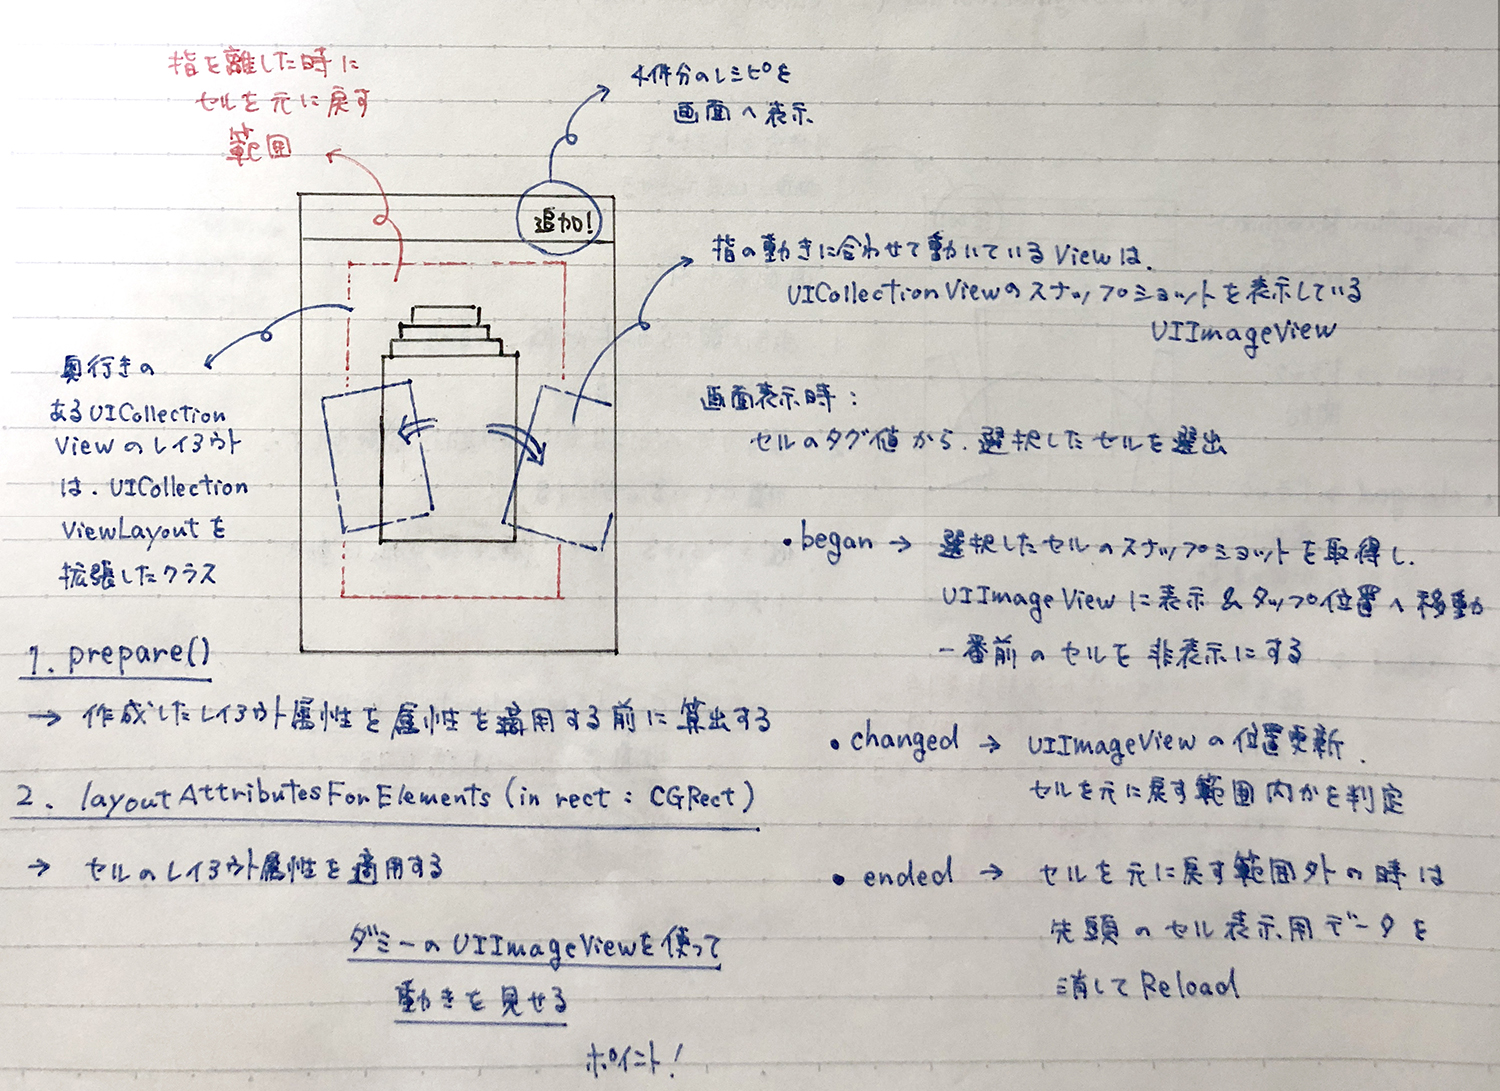 指を離した時に
セルを元に戻す
範囲
4件分のレシピを
画面へ表示
追加!
指の動きに合わせて動いているViewは、
UICollectionViewのスナップショットを表示している
UIImageView
奥行きの
あるUICollection
Viewのレイアウト
は、UICollection
ViewLayoutを
拡張したクラス
画面表示時:
セルのタグ値から、選択したセルを選出
・began → 選択したセルのスナップショットを取得し、
UIImageViewに表示&タップ位置へ移動
一番前のセルを非表示にする
1. prepare()
→ 作成したレイアウト属性を属性を適用する前に算出する
・changed → UIImageViewの位置更新、
セルを元に戻す範囲内かを判定
2. layoutAttributesForElements(in rect: CGRect)
→ セルのレイアウト属性を適用する
・ended → セルを元に戻す範囲外の時は
先頭のセル表示用データを
消してReload
ダミーのUIImageViewを使って
動きを見せる
ポイント!